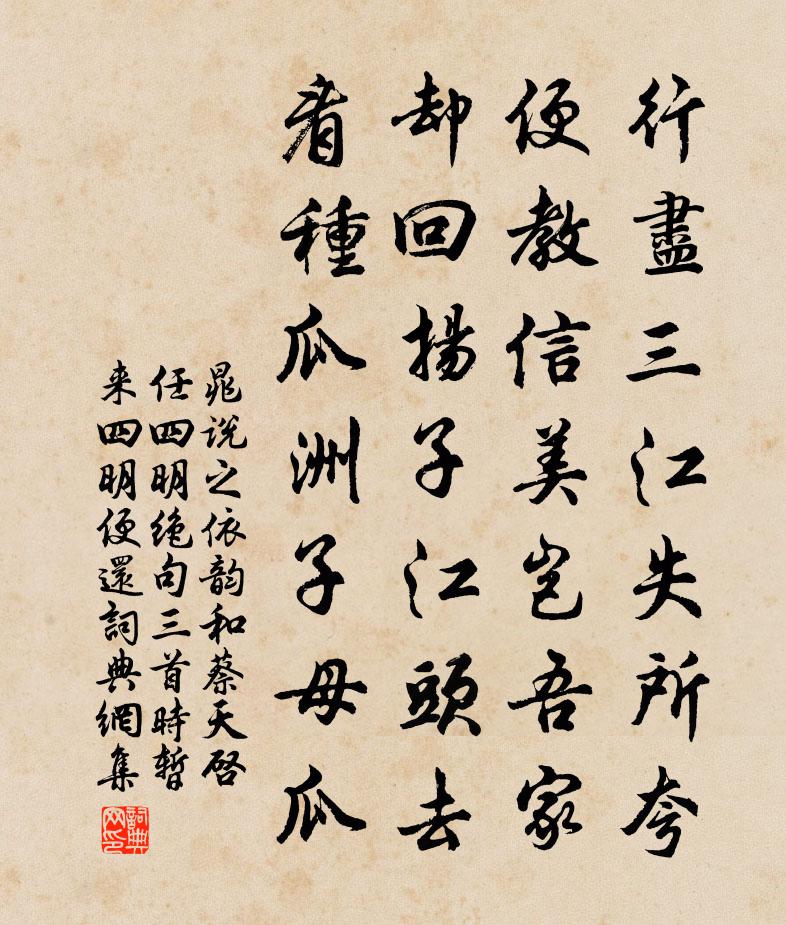 行盡三江失所夸
便教信美豈吾家
却回揚子江頭去
看種瓜洲子母瓜
晁说之依韵和蔡天啓
任四明绝句三首時暫
来四明便還詞典網集
詞典網印